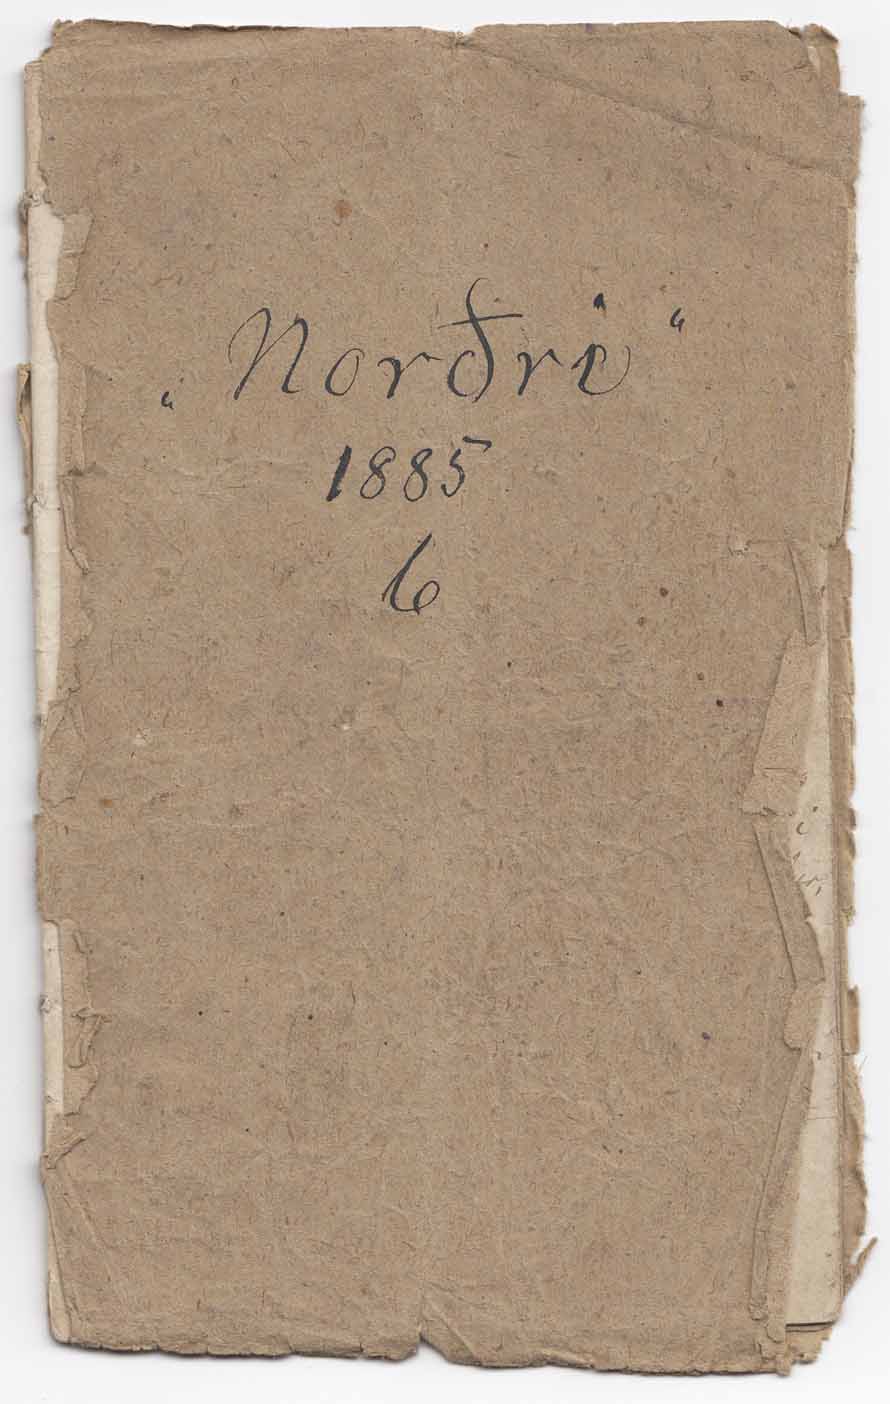 „Norðri“
1885
6